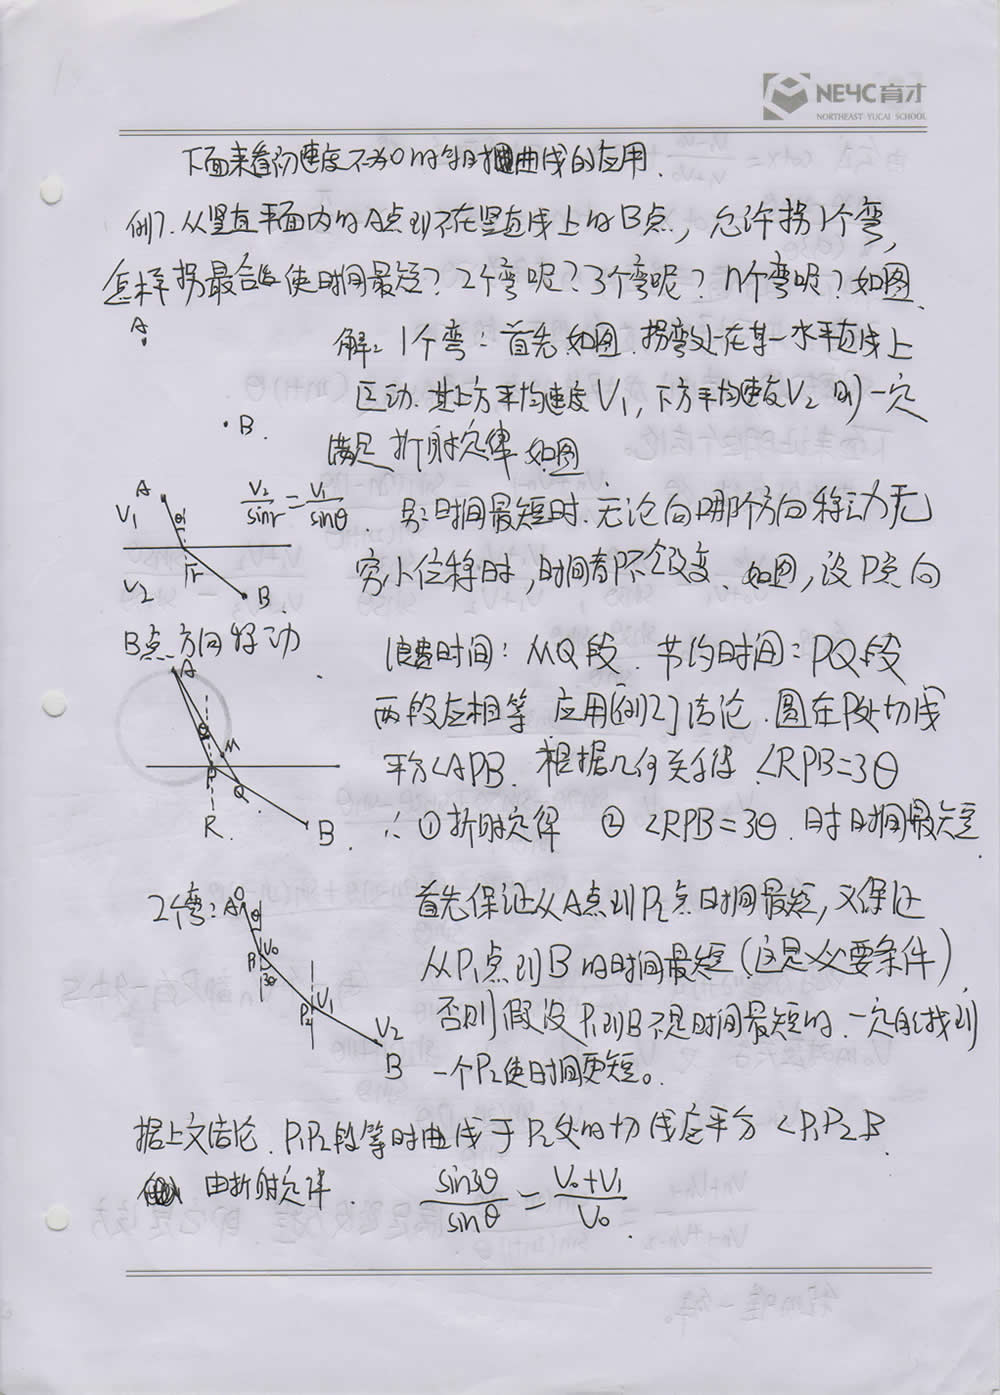 NEYC育才
NORTHEAST YUCAI SCHOOL
下面来看初速度不为0的等时曲线的应用.
例7.从竖直平面内的A点到不在竖直线上的B点,允许拐1个弯,
怎样拐最合 使时间最短?2个弯呢?3个弯呢?n个弯呢?如图.
A.
.B.
解:1个弯:首先如图.拐弯处在某一水平直线上
运动.其上方平均速度V1,下方平均速度V2则一定
满足折射定律 如图
A
V1
θ
V2
r
B
V2/sinr = V1/sinθ . 另:时间最短时.无论向哪个方向移动无
穷小位移时,时间都不改变.如图,设P点向
B点方向移动
浪费时间:MQ段.节约时间:PQ段
两段应相等 应用[例2]结论.圆在P处切线
平分∠APB.根据几何关系得.∠RPB=3θ
∴①折射定律 ②∠RPB=3θ.时时间最短.
A
θ
M
P
Q
R
B
2个弯:
A
θ
P1
V0
3θ
P2
V1
V2
B
首先保证从A点到P2点时间最短,又保证
从P1点到B的时间最短(这是必要条件)
否则假设P1到B不是时间最短的.一定能找到
一个P2使时间更短。
据上文结论.P1P2段等时曲线于P2处的切线应平分∠P1P2B.
由折射定律.
sin3θ/sinθ = V0+V1/V0.